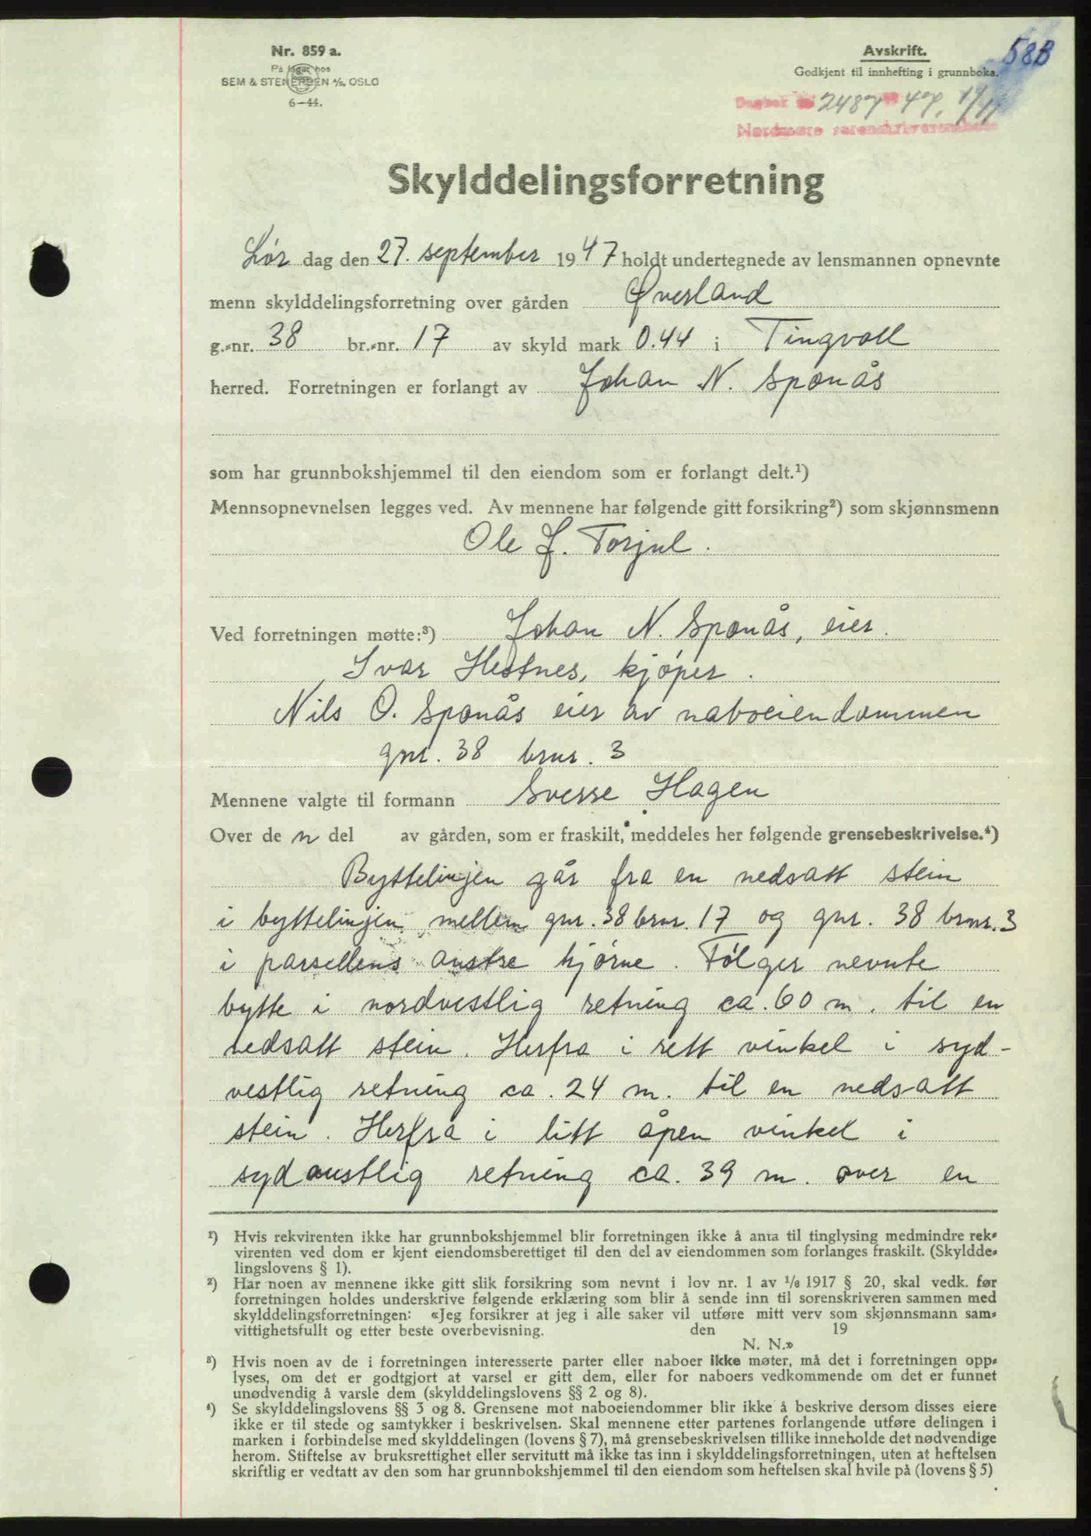 Nr. 859 a.
På lager hos
SEM & STENERSEN A/S, OSLO
6-44.
Avskrift.
Godkjent til innhefting i grunnboka.
58B
Dagbok 2487 47, 1/11
Nordmøre sorenskriverembete
Skylddelingsforretning
Lør dag den 27. september 1947 holdt undertegnede av lensmannen opnevnte
menn skylddelingsforretning over gården Øverland
g.-nr. 38 br.-nr. 17 av skyld mark 0.44 i Tingvoll
herred. Forretningen er forlangt av Johan N. Sponås
som har grunnbokshjemmel til den eiendom som er forlangt delt.¹)
Mennsopnevnelsen legges ved. Av mennene har følgende gitt forsikring²) som skjønnsmenn
Ole J. Torjul.
Ved forretningen møtte:³) Johan N. Sponås, eier.
Ivar Hestnes, kjøper.
Nils O. Sponås eier av naboeiendommen
gnr. 38 brnr. 3
Mennene valgte til formann Sverre Hagen
Over de n del av gården, som er fraskilt, meddeles her følgende grensebeskrivelse.⁴)
Byttelinjen går fra en nedsatt stein
i byttelinjen mellem gnr. 38 brnr. 17 og gnr. 38 brnr. 3
i parsellens austre hjörne. Fölger nevnte
bytte i nordvestlig retning ca. 60 m. til en
nedsatt stein. Herfra i rett vinkel i syd-
vestlig retning ca. 24 m. til en nedsatt
stein. Herfra i litt åpen vinkel i
sydaustlig retning ca. 39 m. over en
¹) Hvis rekvirenten ikke har grunnbokshjemmel blir forretningen ikke å anta til tinglysing medmindre rek-
virenten ved dom er kjent eiendomsberettiget til den del av eiendommen som forlanges fraskilt. (Skyldde-
lingslovens § 1).
²) Har noen av mennene ikke gitt slik forsikring som nevnt i lov nr. 1 av 1/6 1917 § 20, skal vedk. før
forretningen holdes underskrive følgende erklæring som blir å sende inn til sorenskriveren sammen med
skylddelingsforretningen: «Jeg forsikrer at jeg i alle saker vil utføre mitt verv som skjønnsmann sam-
vittighetsfullt og etter beste overbevisning. den 19
N. N.»
³) Hvis noen av de i forretningen interesserte parter eller naboer ikke møter, må det i forretningen opp-
lyses, om det er godtgjort at varsel er gitt dem, eller for naboers vedkommende om det er funnet
unødvendig å varsle dem (skylddelingslovens §§ 2 og 8).
⁴) Se skylddelingslovens §§ 3 og 8. Grensene mot naboeiendommer blir ikke å beskrive dersom disses eiere
ikke er til stede og samtykker i beskrivelsen. Skal mennene etter partenes forlangende utføre delingen i
marken i forbindelse med skylddelingen (lovens § 7), må grensebeskrivelsen tillike inneholde det nødvendige
herom. Stiftelse av bruksrettighet eller servitutt må ikke tas inn i skylddelingsforretningen, uten at heftelsen
skriftlig er vedtatt av den som har grunnbokshjemmel til den eiendom som heftelsen skal hvile på (lovens § 5)